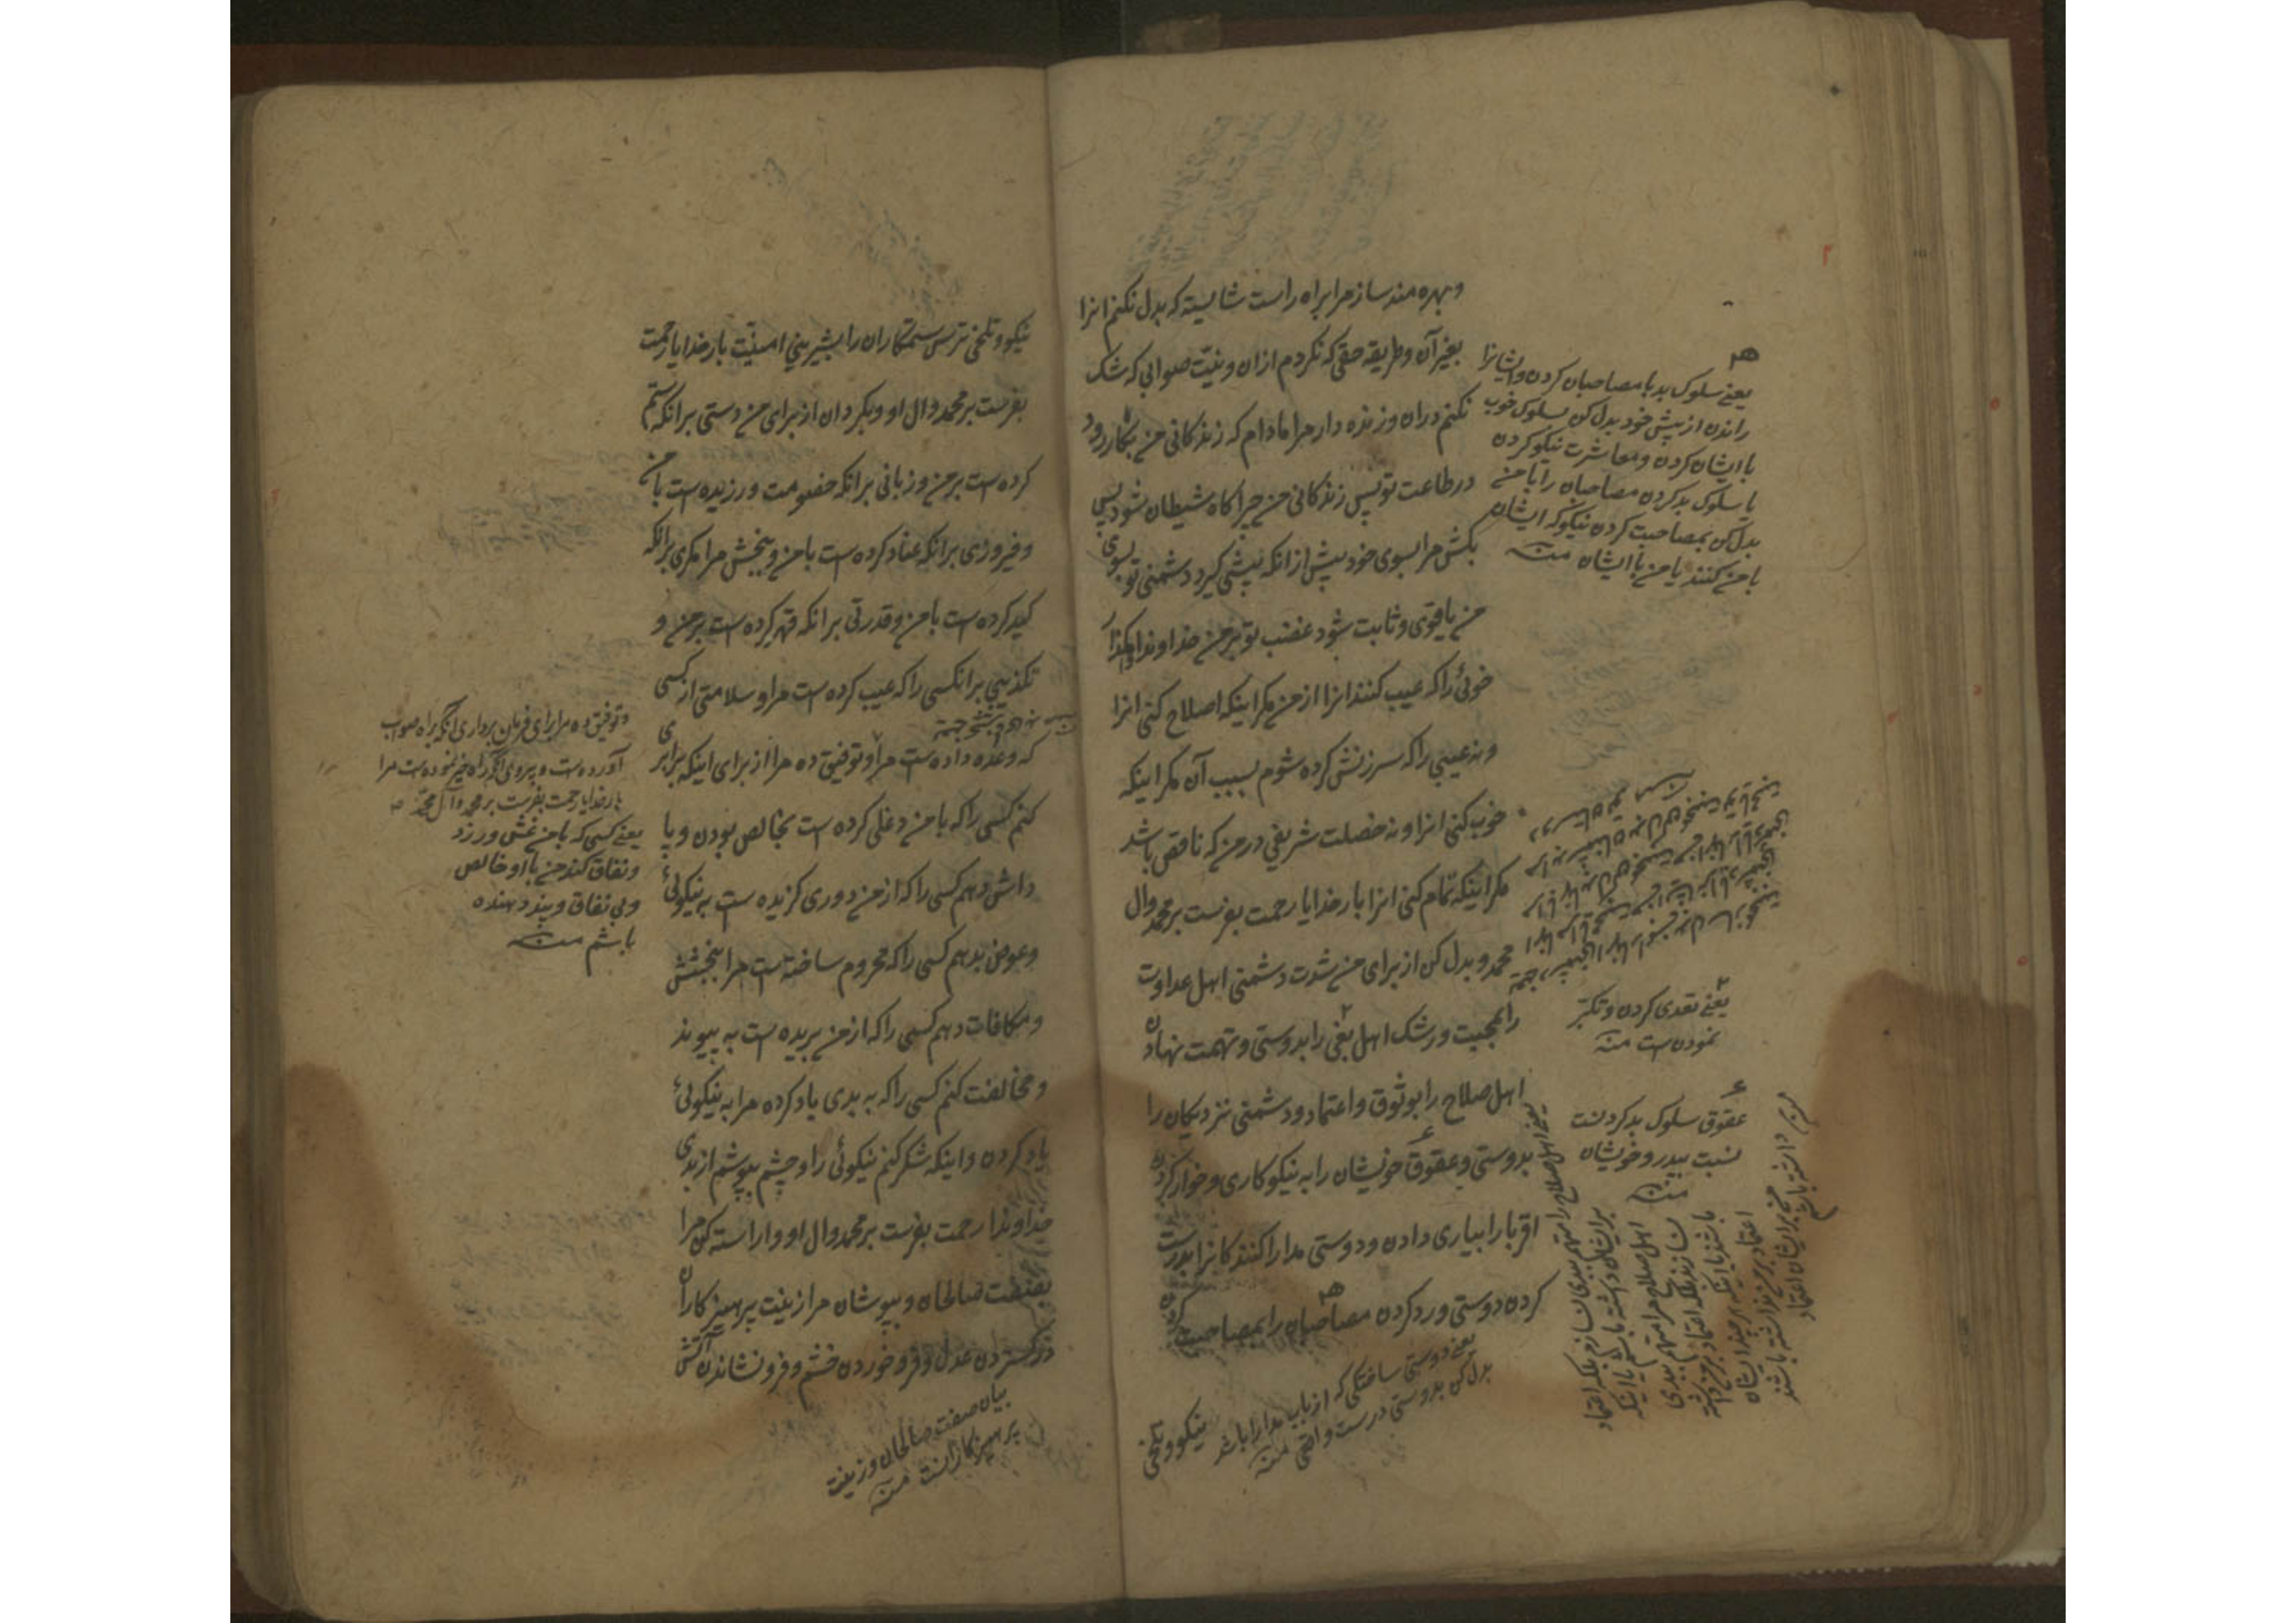 وبهره مند ساز مرا براه راست شایسته که بدل نکنم انرا
بغیر آن وطریقه حقی که نکردم ازان ونیّت صوابی که شک
نکنم دران وزنده دار مرا مادام که زندکانی من بکار رود
درطاعت تو پس زندکانی من چراکاه شیطان شود پس
بکش مرا بسوی خود پیش از انکه پیشی گیرد دشمنی تو بسوی
من یا قوی وثابت شود غضب تو بر من خداوندا وامکذار
خوئی را که عیب کنند انرا از من مکر اینکه اصلاح کنی انرا
ونه عیبی را که سرزنش کرده شوم بسبب آن مکر اینکه
خوب کنی انرا ونه خصلت شریفی در من که ناقص باشد
مکر اینکه تمام کنی انرا بار خدایا رحمت بفرست بر محمد وال
محمد وبدل کن از برای من شدت دشمنی اهل عداوت
را بمحبت ورشک اهل بغی را بدوستی وتهمت نهادن
اهل صلاح را بوثوق واعتماد ودشمنی نزدیکان را
بدوستی وعقوق خویشان را به نیکوکاری وخوار کردن
اقربا را بیاری دادن ودوستی مدارا کنندکانرا بدرست
کردن دوستی ورد کردن مصاحبان را بمصاحبت کردن
نیکو وتلخی
یعنے سلوک بد با مصاحبان کردن وایشانرا
راندن از پیش خود بدل کن بسلوک خوب
با ایشان کردن ومعاشرت نیکو کردن
یا سلوک بد کردن مصاحبان را با من
بدل کن بمصاحبت کردن نیکو که ایشان
با من کنند یا من با ایشان منه
یعنے تعدی کردن وتکبّر
نمودن است منه
عقوق سلوک بد کردنست
نسبت بپدر وخویشان
منه
یعنے اهل صلاح را متهم ببدی نسازم بلکه اعتماد
برایشان داشته باشم یا اینکه
اهل صلاح مرا متهم ببدی
نسازند بلکه اعتماد بر من داشته
باشند یا اینکه
اعتماد بر من نداشته باشند
من بر ایشان اعتماد
داشته باشم
یعنے دوستی ساختکی که از باب مدارا باشد
بدل کن بدوستی درست واقعی منه
نیکو وتلخی ترس ستمکاران را بشیرینی امنیّت بار خدایا رحمت
بفرست بر محمد وال او وبکردان از برای من دستی بر انکه ستم
کرده است بر من وزبانی بر انکه خصومت ورزیده است با من
وفیروزی بر انکه عناد کرده است با من وببخش مرا مکری بر انکه
کید کرده است با من وقدرتی بر انکه قهر کرده است بر من و
تکذیبی بر انکسی را که عیب کرده است مرا وسلامتی از کسی
که وعده داده است مرا وتوفیق ده مرا از برای اینکه برابری
کنم کسی را که با من دغلی کرده است بخالص بودن وپا
داش دهم کسی را که از من دوری کزیده است به نیکوئی
وعوض بدهم کسی را که محروم ساخته است مرا ببخشش
ومکافات دهم کسی را که از من بریده است به پیوند
ومخالفت کنم کسی را که به بدی یاد کرده مرا به نیکوئی
یاد کردن واینکه شکر کنم نیکوئی را وچشم بپوشم از بدی
خداوندا رحمت بفرست بر محمد وال او واراسته کن مرا
بصفت صالحان وبپوشان مرا زینت پرهیزکاران
در کستردن عدل وفرو خوردن خشم وفرو نشاندن آتش
وتوفیق ده مرا برای فرمان برداری انکه براه صواب
آورده است وپیروی انکه راه خیر نموده است مرا
بار خدایا رحمت بفرست بر محمد وآل محمّد
یعنے کسی که با من غش ورزد
ونفاق کند من با او خالص
وبی نفاق وپند دهنده
باشم منه
بیان صفت صالحان وزینت
پرهیزکارانست منه